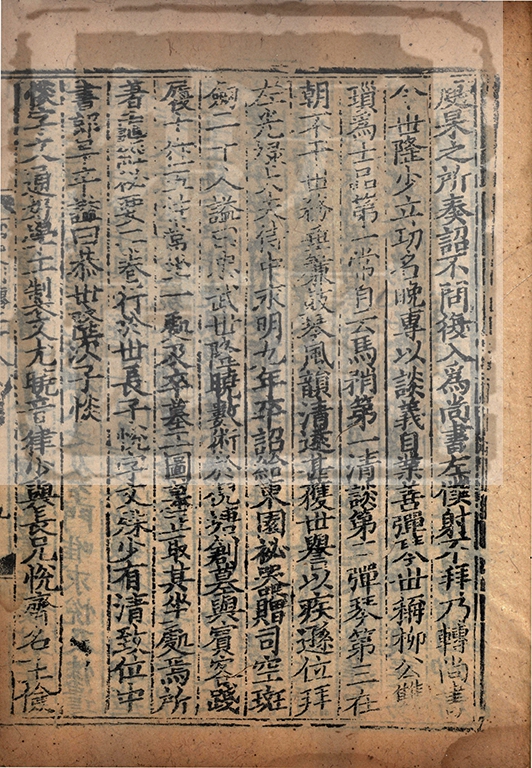 庾杲之所奏詔不問後入爲尚書左僕射不拜乃轉尚書
令世隆少立功名晚專以談義自業善彈琴世稱柳公雙
璅爲士品第一常自云馬矟第一清談第二彈琴第三在
朝不干世務垂簾鼓琴風韻清遠甚獲世譽以疾遜位拜
左光祿大夫侍中永明九年卒詔給東園祕器贈司空班
劒二十人謚曰忠武世隆曉數術於倪塘創墓與賓客踐
履十往五往常坐一處及卒墓工圖墓正取其坐處焉所
著龜經祕要二卷行於世長子悅字文殊少有清致位中
書郎早卒謚曰恭世隆次子惔
惔字文通好學工製文尤曉音律少與長兄悅齊名王儉